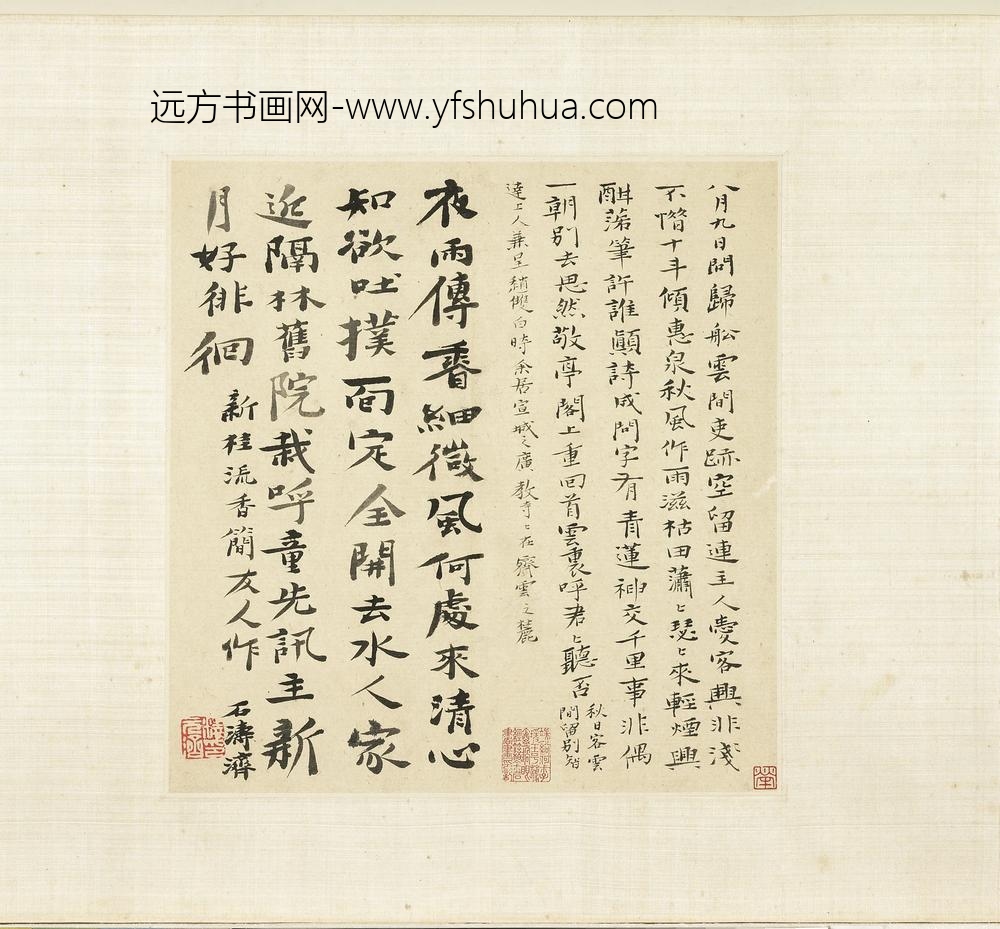 远方书画网-www.yfshuhua.com
八月九日問歸舩雲間吏跡空留連主人愛客興非淺
不惜十斗傾惠泉秋風作雨滋枯田蕭〻瑟〻來輕煙興
酣落筆許誰顛詩成問字有青蓮神交千里事非偶
一朝別去思然敬亭閣上重回首雲裏呼君〻聽否
秋日客雲
間留別智
達上人兼呈趙雙白時余居宣城之廣教寺〻在齊雲之麓
夜雨傳番細微風何處來清心
知欲吐撲面定全開去水人家
近隔林舊院栽呼童先訊主新
月好徘徊
新桂流香簡友人作
石濤濟